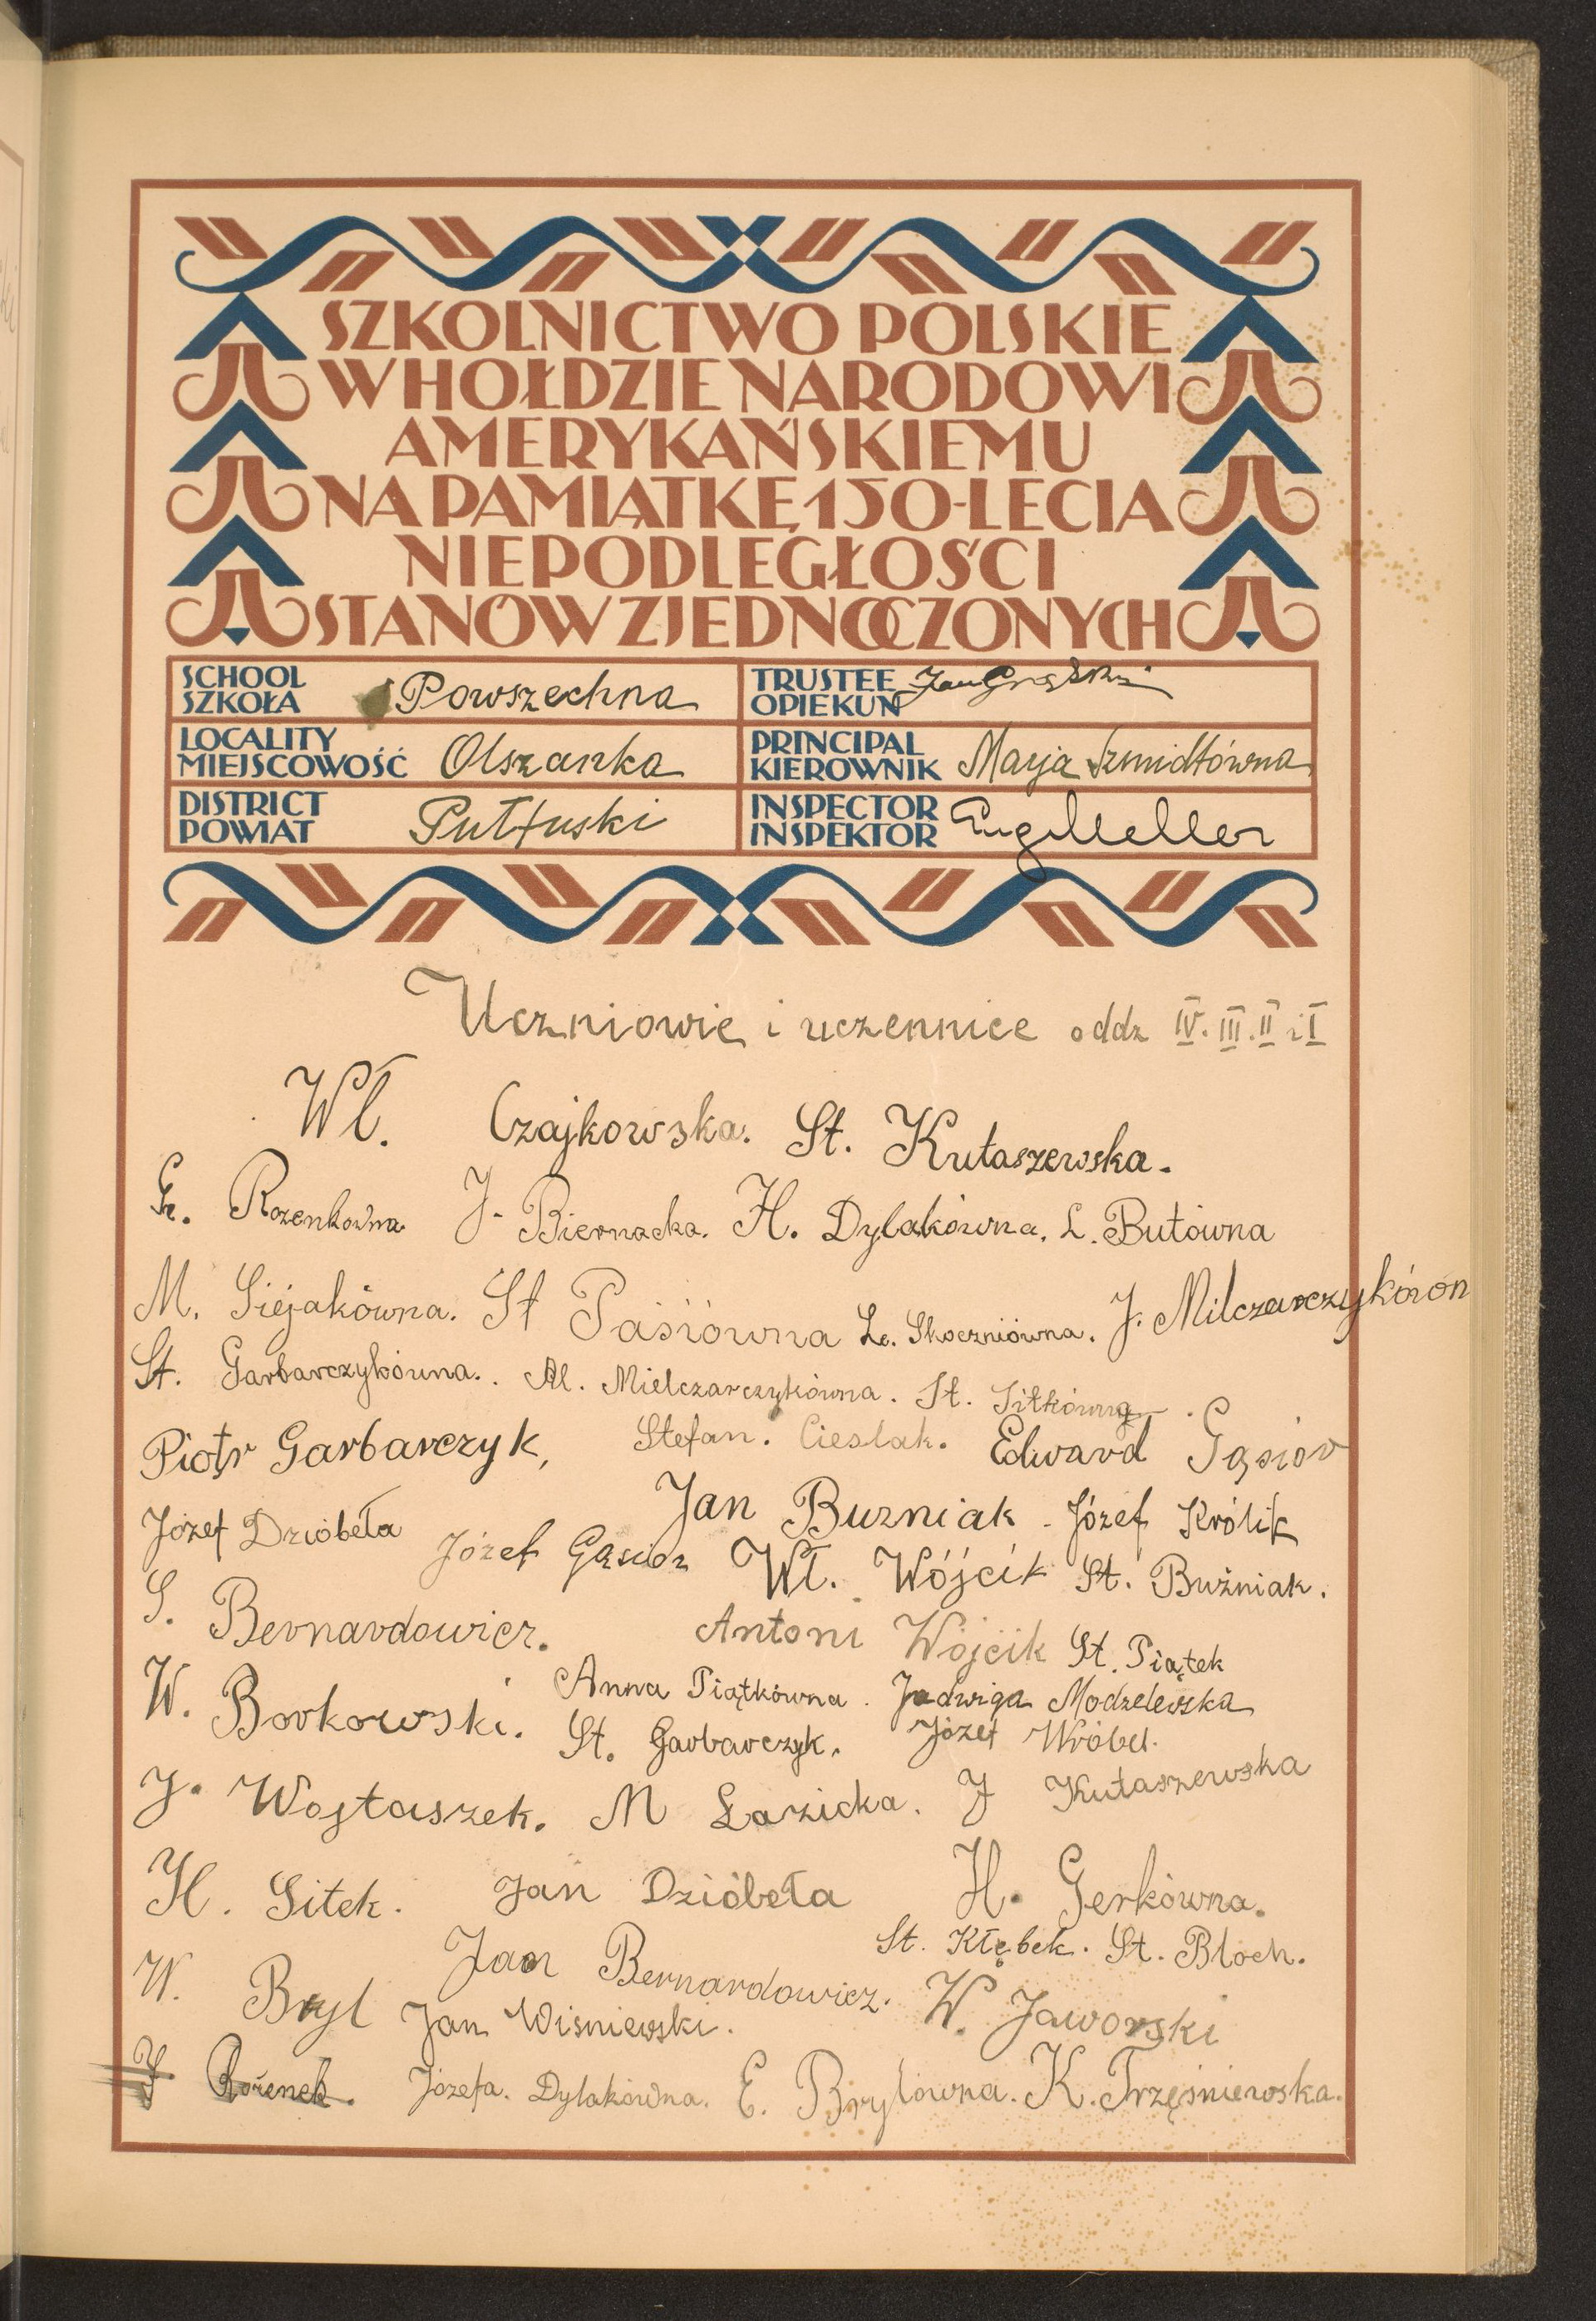 SZKOLNICTWO POLSKIE
W HOŁDZIE NARODOWI
AMERYKAŃSKIEMU
NA PAMIĄTKĘ 150-LECIA
NIEPODLEGŁOŚCI
STANÓW ZJEDNOCZONYCH
SCHOOL
SZKOŁA Powszechna
TRUSTEE
OPIEKUN Jan
LOCALITY
MIEJSCOWOŚĆ Olszanka
PRINCIPAL
KIEROWNIK Marja Szmidtówna
DISTRICT
POWIAT Pułtuski
INSPECTOR
INSPEKTOR Eug. Meller
Uczniowie i uczennice oddz IV. III. II i I
Wł. Czajkowska. St. Kutaszewska.
Rozenkowna J. Biernacka. H. Dylakówna. L. Butówna
M. Siejakówna. St Pasiówna Le. Skoczniówna. J. Milczarczykóron
St. Garbarczykówna.. Al. Mielczarczykówna. St. Sitkówna.
Piotr Garbarczyk, Stefan. Cieslak. Edward Gąsior
Józef Dzióbeła Jan Buzniak. Józef Królik
Józef Gąsior Wł. Wójcik St. Buźniak.
S. Bernardowicz. Antoni Wójcik St. Piątek
W. Borkowski. Anna Piątkówna. Jadwiga Modzelewska
St. Garbarczyk. Józef Wróbel.
J. Wojtaszek. M Łazicka. J Kutaszewska
H. Sitek. Jan Dzióbeła H. Gerkówna.
St. Kłębek. St. Bloch.
W. Bryl Jan Bernardowicz. W. Jaworski
Jan Wisniewski.
J Rożenek. Józefa. Dylakówna. E. Brylówna. K. Trzęśniewska.